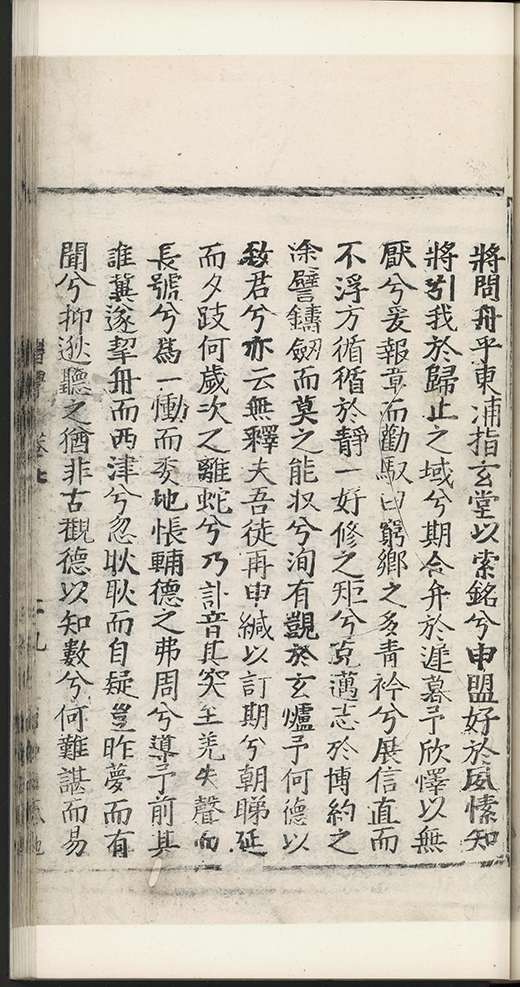 將問舟乎東浦指玄堂以索銘兮申盟好於夙愫知
將引我於歸止之域兮期合弁於遲暮予欣懌以無
厭兮爰報章而勸馭曰窮鄉之多靑衿兮展信直而
不浮方循循於靜一好修之矩兮克邁志於博約之
涂譬鑄劒而莫之能収兮洵有覬於玄爐予何德以
致君兮亦云無釋夫吾徒再申緘以訂期兮朝睇延
而夕跂何歲次之離蛇兮乃訃音其突至羌失聲而
長號兮爲一慟而委地悵輔德之弗周兮導予前其
誰冀遂挐舟而西津兮忽耿耿而自疑豈昨夢而有
聞兮抑逖聽之猶非古觀德以知數兮何難諶而易